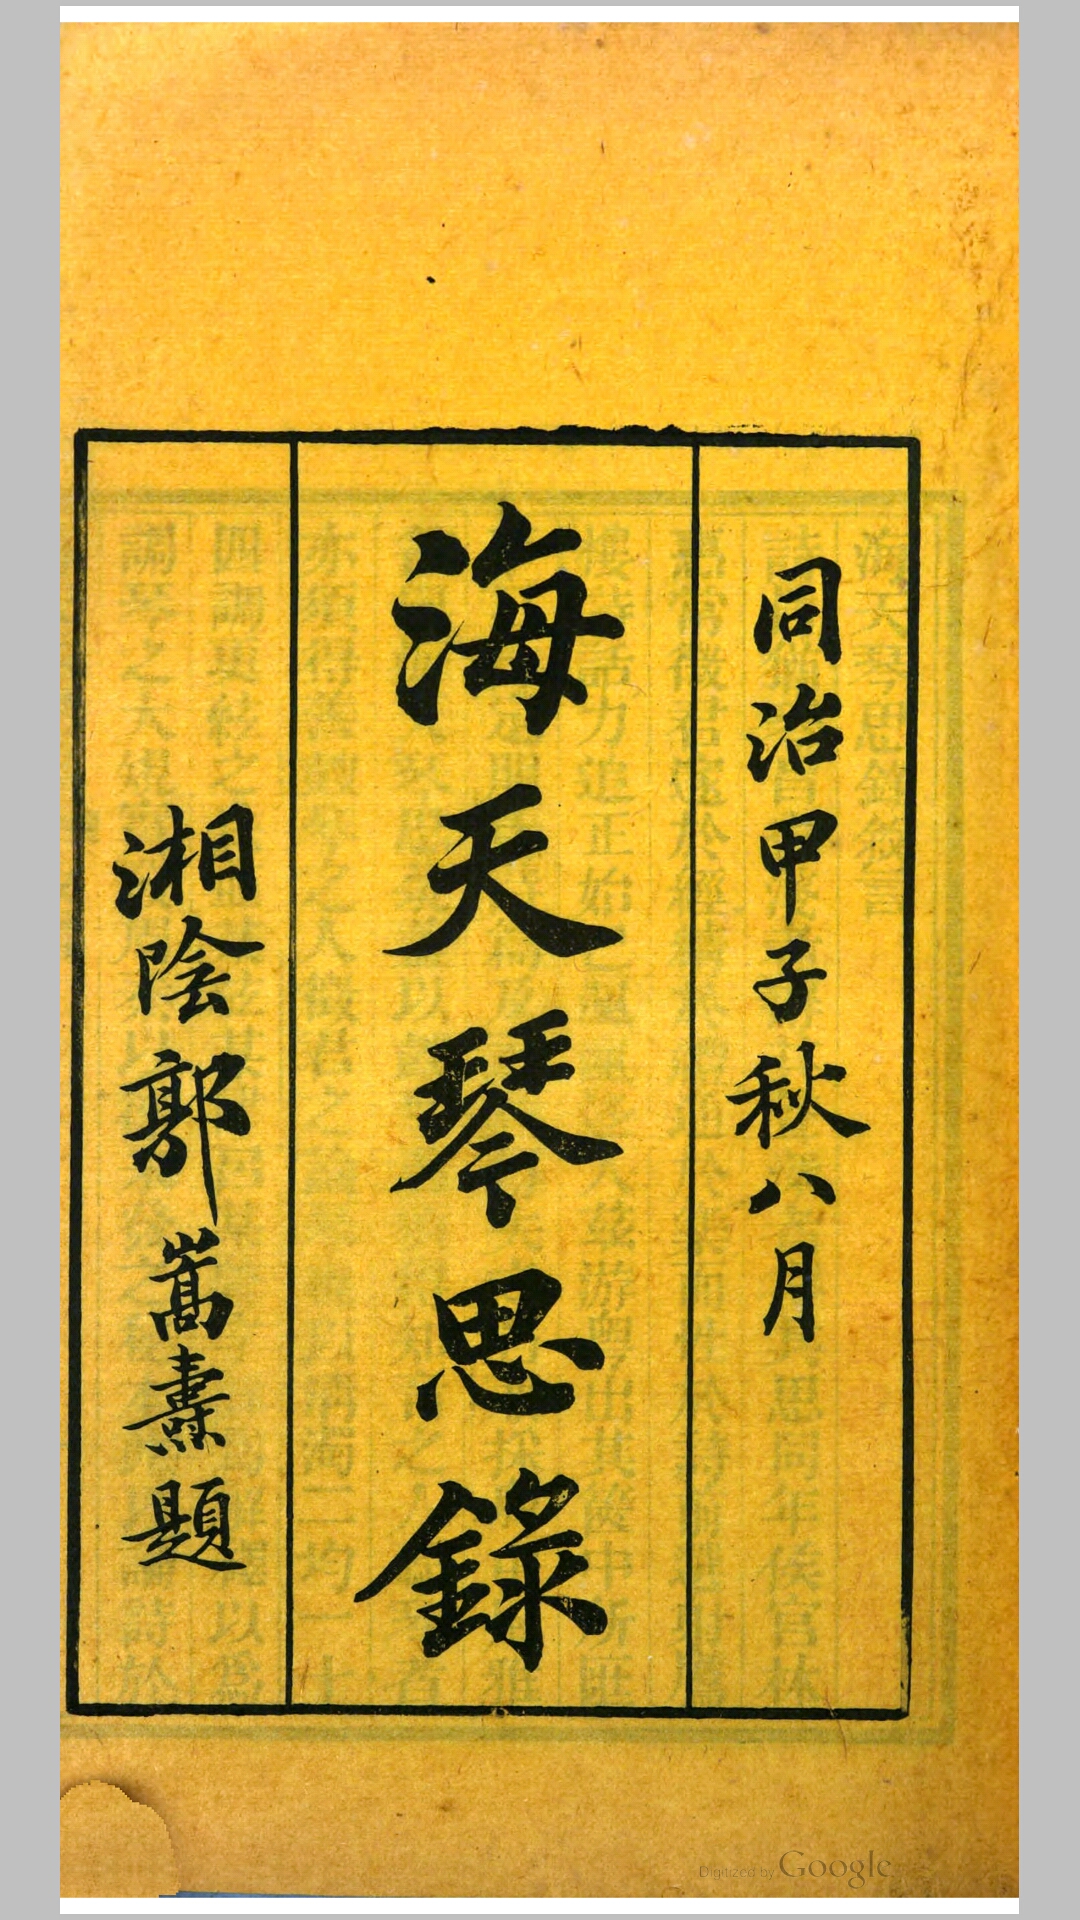 同治甲子秋八月
海天琴思錄
湘陰郭嵩燾題
Digitized by Google